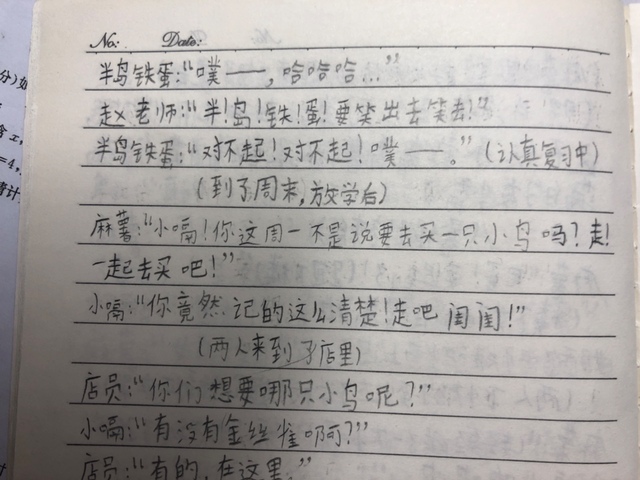 No: Date:
半鸟铁蛋：“噗——，哈哈哈…”
赵老师：“半！岛！铁！蛋！要笑出去笑去！”
半岛铁蛋：“对不起！对不起！噗——。”（认真复习中）
（到了周末，放学后）
麻薯：“小嗝！你这周一不是说要去买一只小鸟吗？走！
一起去买吧！”
小嗝：“你竟然记的这么清楚！走吧闺闺！”
（两人来到了店里）
店员：“你们想要哪只小鸟呢？”
小嗝：“有没有金丝雀啊？”
店员：“有的，在这里。”
分）如
含x，
=4，